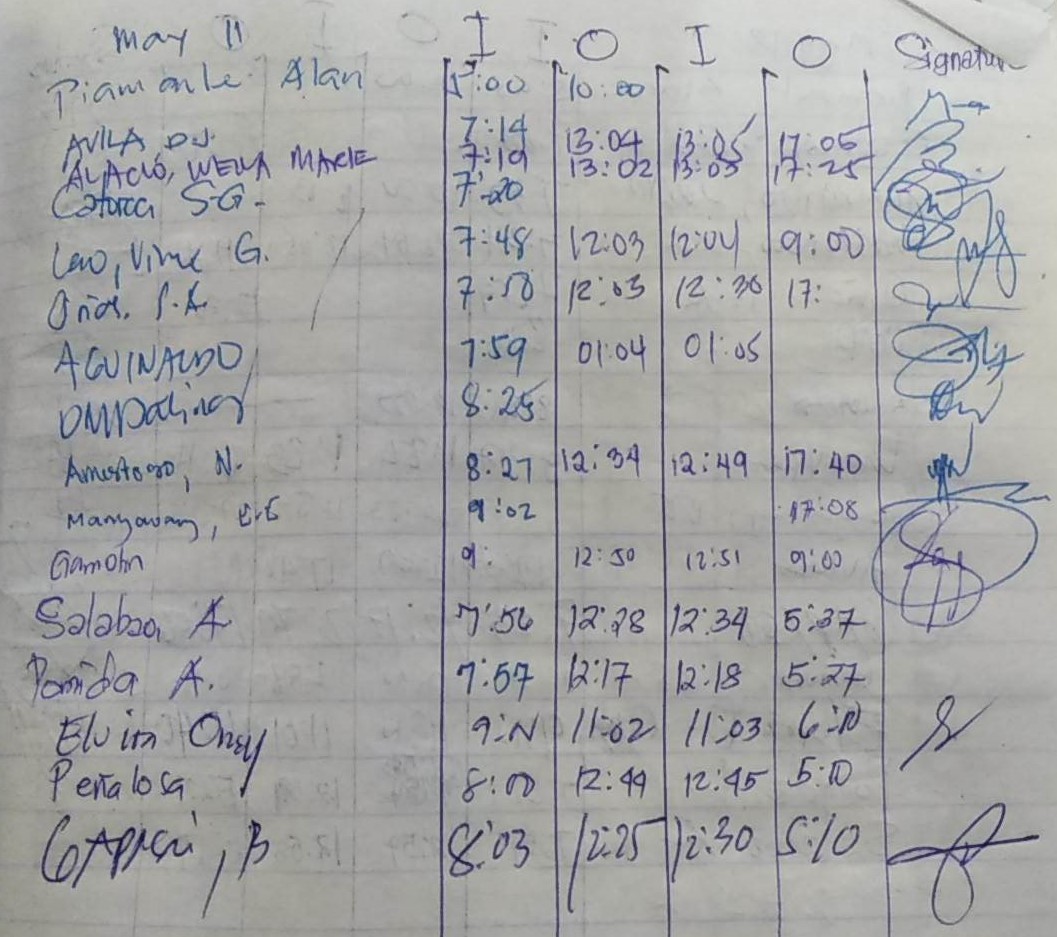 May 11 I O I O Signature
Piamonte Alan 5:00 10:00
AVILA D.J. 7:14 13:04 13:05 17:05
ALACIO, WENA MARIE 7:19 13:02 13:03 17:25
Catorce SG. 7:20
Lao, Vime G. 7:48 12:03 12:04 9:00
7:58 12:03 12:30 17:
AGUINALDO 7:59 01:04 01:05
8:25
N. 8:27 12:34 12:49 17:40
9:02 17:08
9: 12:50 12:51 9:00
Salabao, A 7:56 12:28 12:34 5:37
Pomida A. 7:57 12:17 12:18 5:27
Elvira 11:02 11:03
Peñalosa 8:00 12:44 12:45 5:10
B 8:03 12:25 12:30 5:10